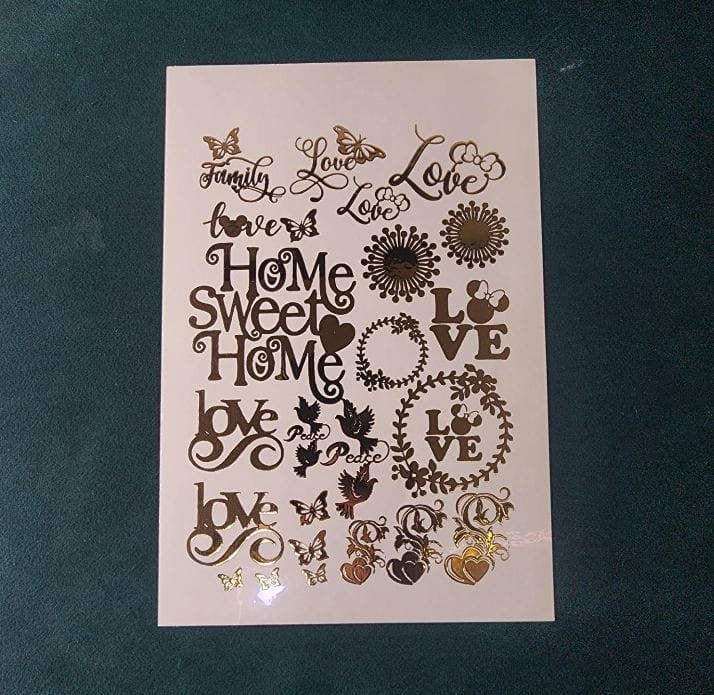 Family
Love
Love
Love
love
HOMe
Sweet
HOMe
LOVE
love
Peace
Peace
LO
VE
love